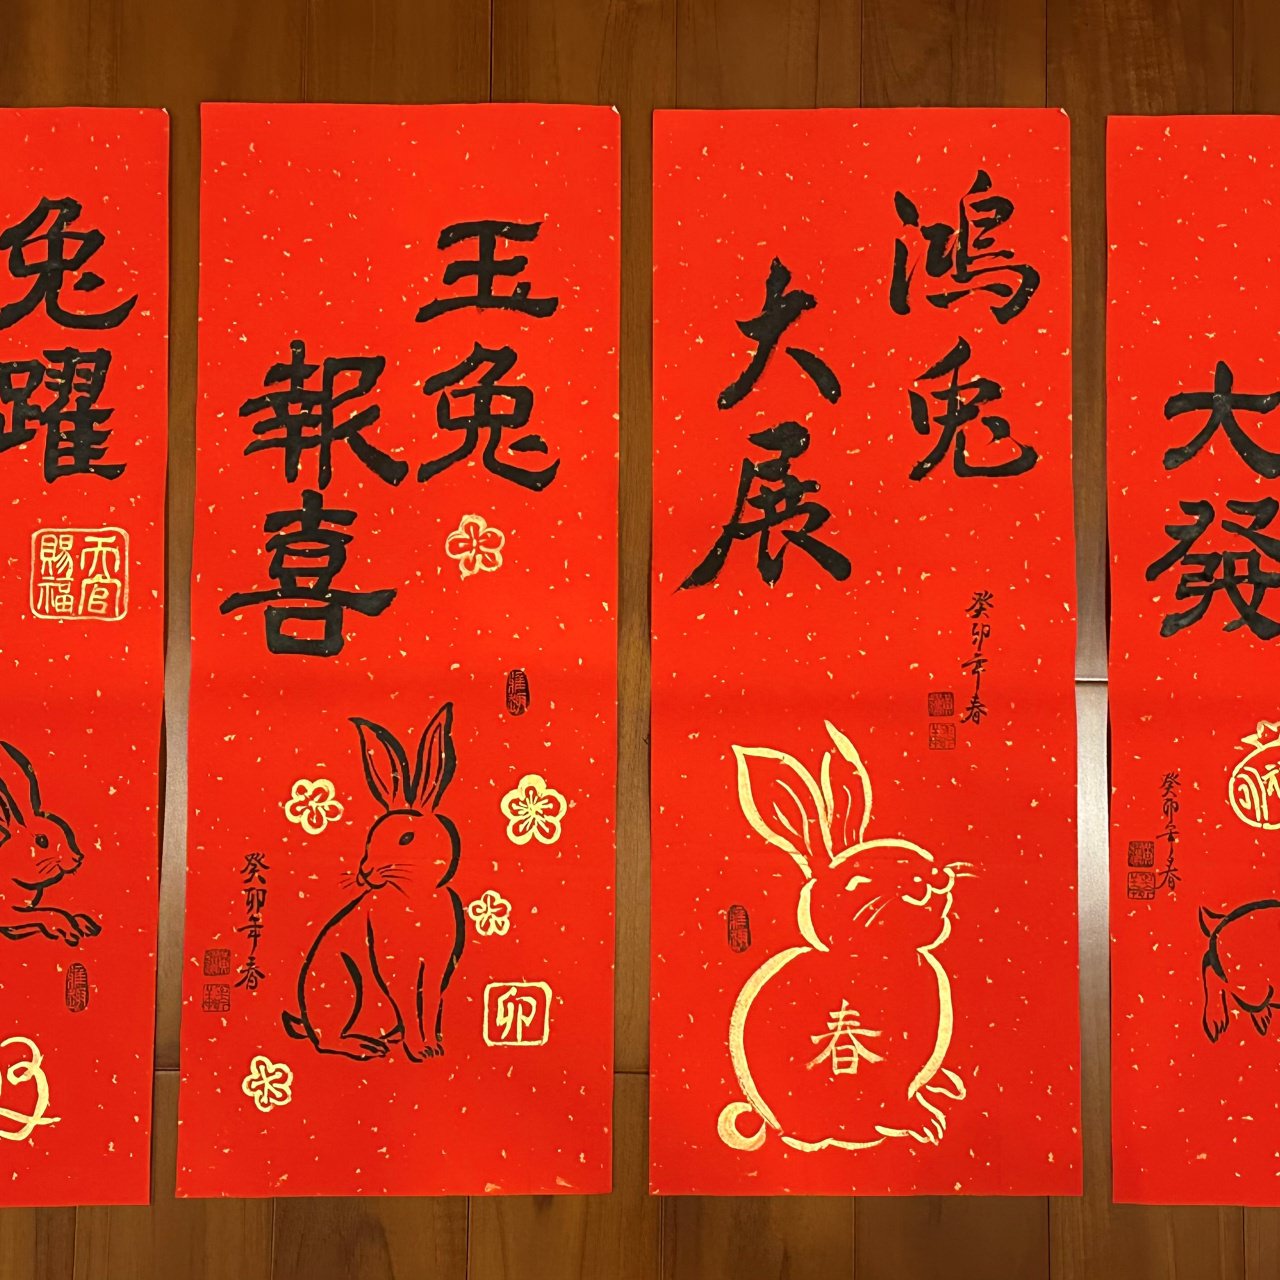 兔躍
天官
賜福
玉兔
報喜
癸卯年春
卯
鴻兔
大展
癸卯年春
春
大發
癸卯年春